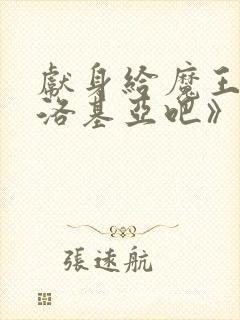 獻身給魔王
洛基亞吧》
張遠航